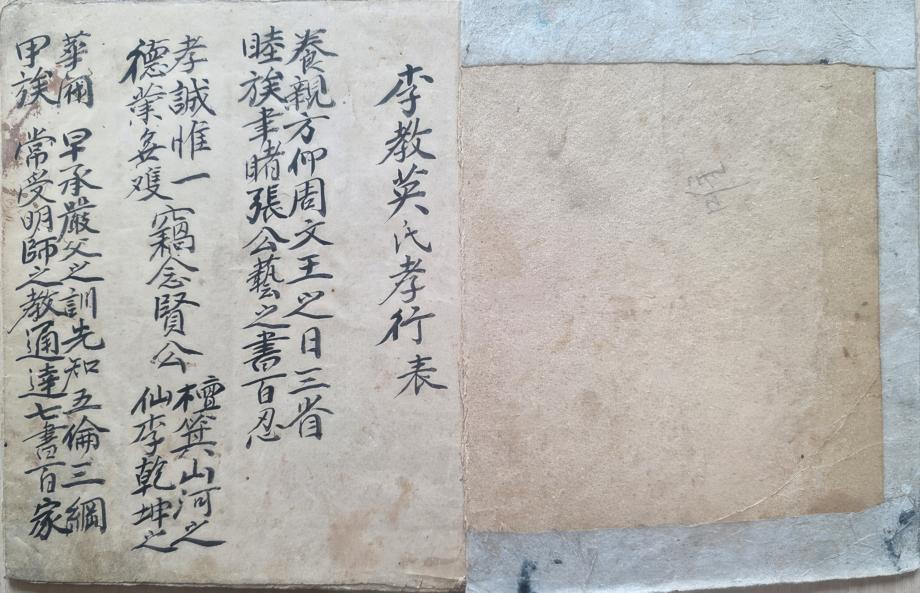 李教英氏孝行表
養親方仰周文王之日三省
睦族聿睹張公藝之書百忍
孝誠惟一
德業無雙
竊念賢公
檀箕山河之
仙李乾坤之
華閥
甲族
早承嚴父之訓先知五倫三綱
常受明師之教通達七書百家